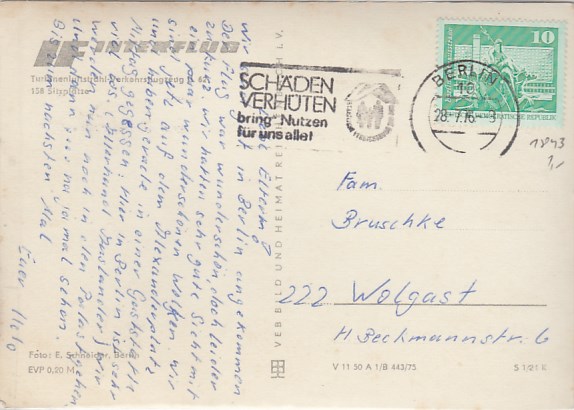 INTERFLUG
Turbinenluftstrahl-Verkehrsflugzeug
158 Sitzplätze
Eltern!
wir sind gut in Berlin angekommen.
Der Flug war wunderschön doch leider
zu kurz. Wir hatten sehr gute Sicht mit
ein paar wunderschönen Wolken. Wir
sind jetzt auf dem Alexanderplatz
und haben gerade in einer Gaststätte
Mittag gegessen. Hier in Berlin ist sehr
viel los. Ausländer) wir
werden nun noch in den Palast gehen
mal sehen.
Bis zum nächsten Mal
Euer
Foto: E. Schneider, Berlin
EVP 0,20 M
VEB BILD UND HEIMAT REICHENBACH I. V.
SCHÄDEN
VERHÜTEN
bring Nutzen
für uns alle!
BERLIN
28.7.76
10
DEUTSCHE DEMOKRATISCHE REPUBLIK
1843
1,-
Fam.
Bruschke
222 Wolgast
H. Beckmannstr. 6
V 11 50 A 1/B 443/75
S 1/21 R